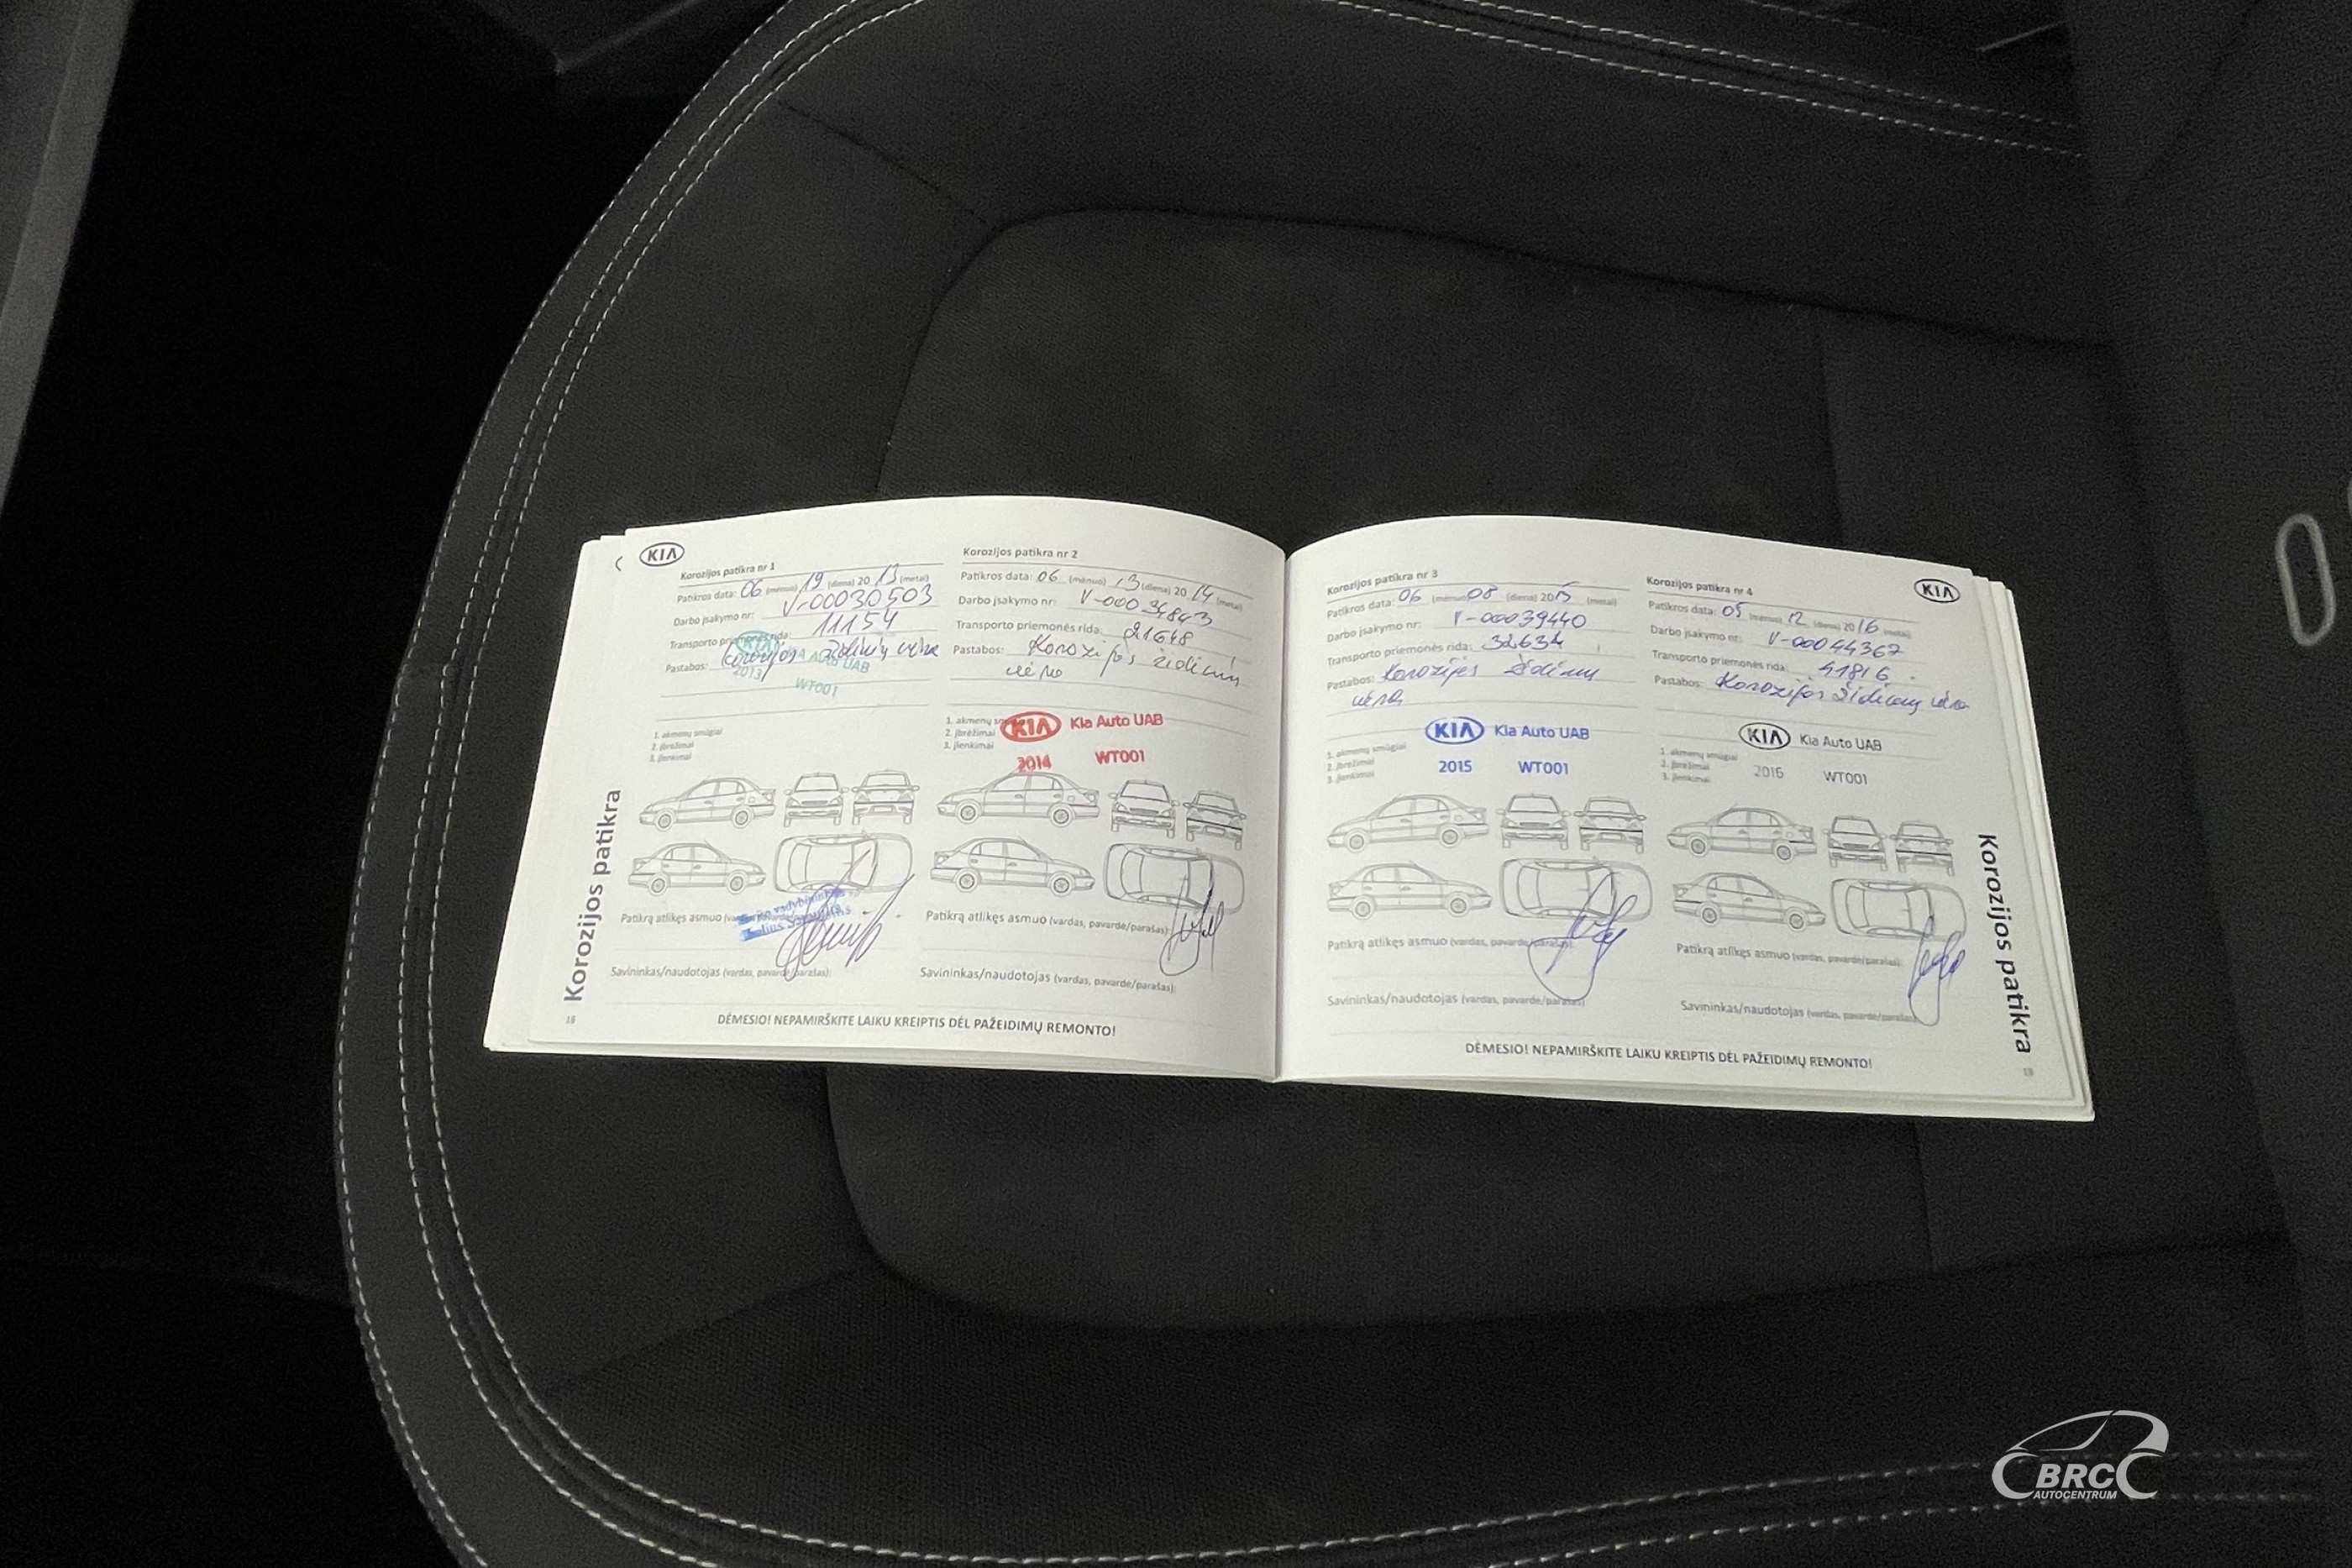 KIA
Korozijos patikra nr 1
Patikros data: 06 (mėnuo) 19 (diena) 20 13 (metai)
Darbo įsakymo nr: V-00030503
Transporto priemonės rida: 11154
Pastabos: Korozijos židinių nėra
KIA KIA AUTO UAB
2013 WT001
1. akmenų smūgiai
2. įbrėžimai
3. įlenkimai
Patikrą atlikęs asmuo
Savininkas/naudotojas (vardas, pavardė/parašas):
Korozijos patikra nr 2
Patikros data: 06 (mėnuo) 13 (diena) 20 14 (metai)
Darbo įsakymo nr: V-00034843
Transporto priemonės rida: 21648
Pastabos: Korozijos židinių
nėra
KIA Kia Auto UAB
2014 WT001
1. akmenų
2. įbrėžimai
3. įlenkimai
Patikrą atlikęs asmuo (vardas, pavardė/parašas):
Savininkas/naudotojas (vardas, pavardė/parašas):
Korozijos patikra
18
DĖMESIO! NEPAMIRŠKITE LAIKU KREIPTIS DĖL PAŽEIDIMŲ REMONTO!
Korozijos patikra nr 3
Patikros data: 06 (mėnuo) 08 (diena) 2015 (metai)
Darbo įsakymo nr: V-00039440
Transporto priemonės rida: 32634
Pastabos: Korozijos židinių
nėra
KIA Kia Auto UAB
2015 WT001
1. akmenų smūgiai
2. įbrėžimai
3. įlenkimai
Patikrą atlikęs asmuo (vardas, pavardė/parašas):
Savininkas/naudotojas (vardas, pavardė/parašas)
KIA
Korozijos patikra nr 4
Patikros data: 05 (mėnuo) 12 (diena) 2016 (metai)
Darbo įsakymo nr: V-00044367
Transporto priemonės rida: 41816
Pastabos: Korozijos židinių nėra
KIA Kia Auto UAB
2016 WT001
1. akmenų smūgiai
2. įbrėžimai
3. įlenkimai
Patikrą atlikęs asmuo (vardas, pavardė/parašas):
Savininkas/naudotojas (vardas, pavardė/parašas)
Korozijos patikra
19
DĖMESIO! NEPAMIRŠKITE LAIKU KREIPTIS DĖL PAŽEIDIMŲ REMONTO!
BRC
AUTOCENTRUM